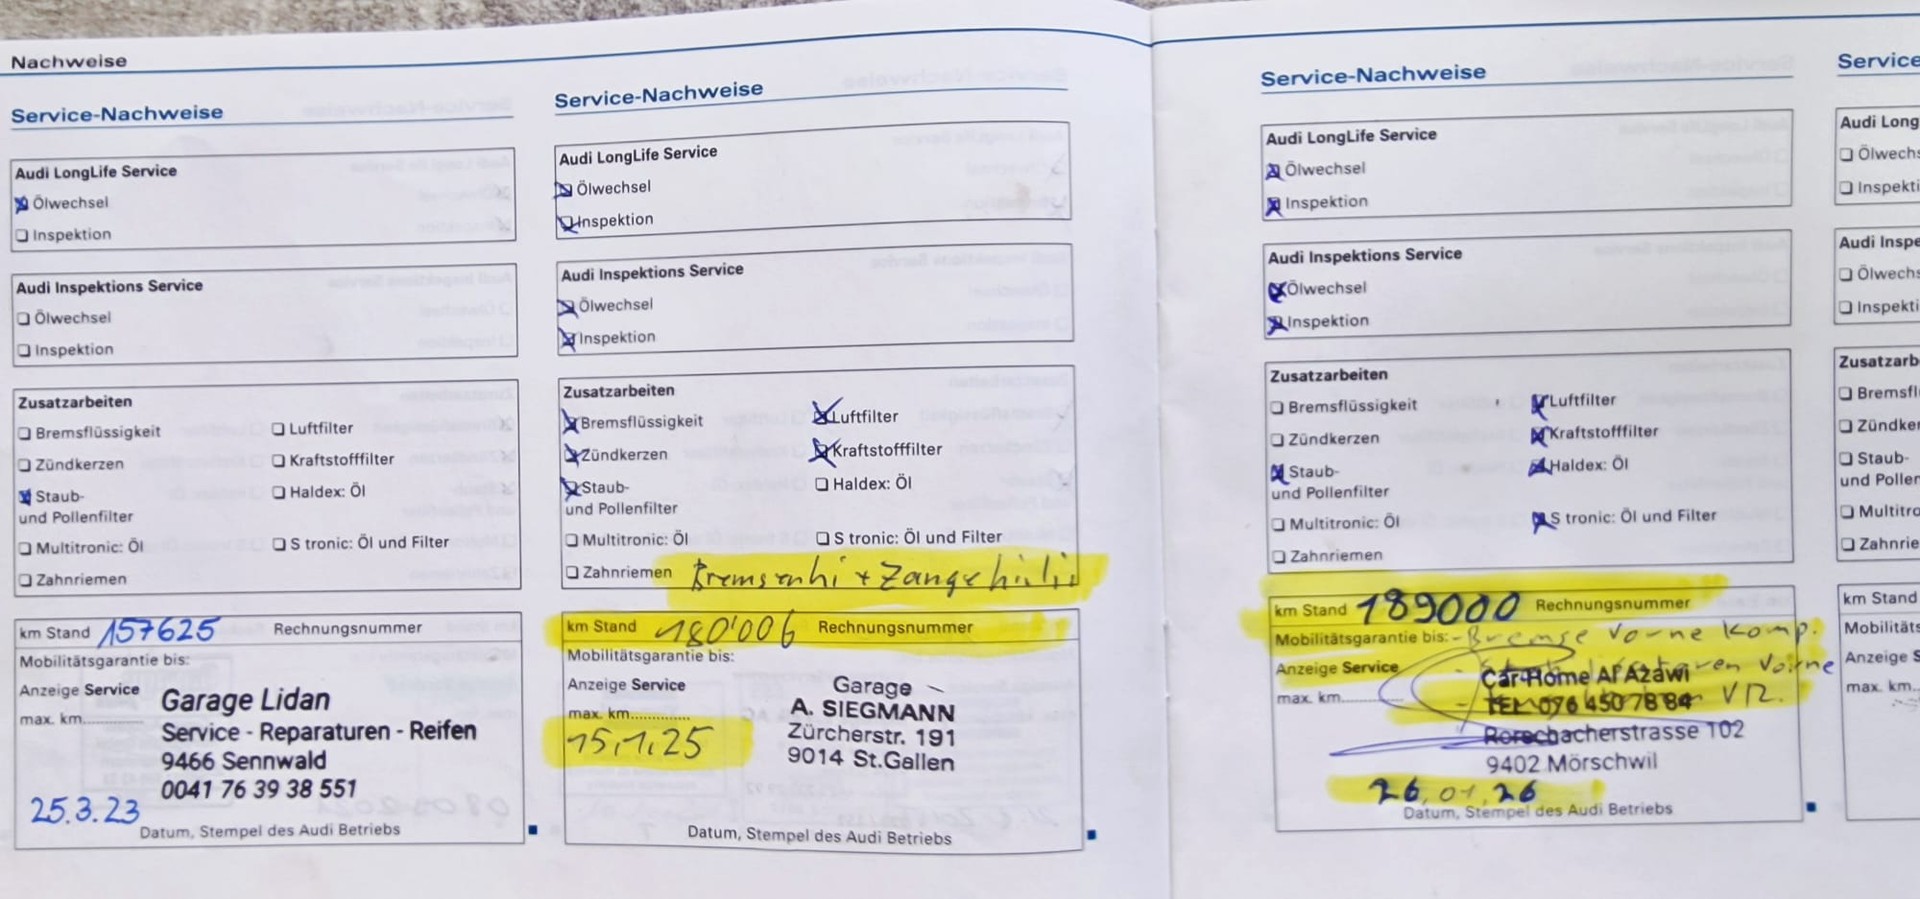 Nachweise
Service-Nachweise
Audi LongLife Service
Ölwechsel
Inspektion
Audi Inspektions Service
Ölwechsel
Inspektion
Zusatzarbeiten
Bremsflüssigkeit Luftfilter
Zündkerzen Kraftstofffilter
Staub- Haldex: Öl
und Pollenfilter
Multitronic: Öl S tronic: Öl und Filter
Zahnriemen
km Stand 157625 Rechnungsnummer
Mobilitätsgarantie bis:
Anzeige Service
max. km..............
Garage Lidan
Service - Reparaturen - Reifen
9466 Sennwald
0041 76 39 38 551
25.3.23
Datum, Stempel des Audi Betriebs
Service-Nachweise
Audi LongLife Service
Ölwechsel
Inspektion
Audi Inspektions Service
Ölwechsel
Inspektion
Zusatzarbeiten
Bremsflüssigkeit Luftfilter
Zündkerzen Kraftstofffilter
Staub- Haldex: Öl
und Pollenfilter
Multitronic: Öl S tronic: Öl und Filter
Zahnriemen
km Stand 180'006 Rechnungsnummer
Mobilitätsgarantie bis:
Anzeige Service
max. km..............
15.1.25
Garage
A. SIEGMANN
Zürcherstr. 191
9014 St.Gallen
Datum, Stempel des Audi Betriebs
Service-Nachweise
Audi LongLife Service
Ölwechsel
Inspektion
Audi Inspektions Service
Ölwechsel
Inspektion
Zusatzarbeiten
Bremsflüssigkeit Luftfilter
Zündkerzen Kraftstofffilter
Staub- Haldex: Öl
und Pollenfilter
Multitronic: Öl S tronic: Öl und Filter
Zahnriemen
km Stand 189000 Rechnungsnummer
Mobilitätsgarantie bis: - Bremse Vorne Komp.
Anzeige Service Vorne
max. km..............
Car-Home Al Azawi
TEL 076 450 78 84
Rorschacherstrasse 102
9402 Mörschwil
26.01.26
Datum, Stempel des Audi Betriebs
Service
Audi Long
Ölwechs
Inspekti
Audi Inspe
Ölwechs
Inspekti
Zusatzarb
Bremsfl
Zündker
Staub-
und Pollen
Multitro
Zahnrie
km Stand
Mobilitäts
Anzeige S
max. km..